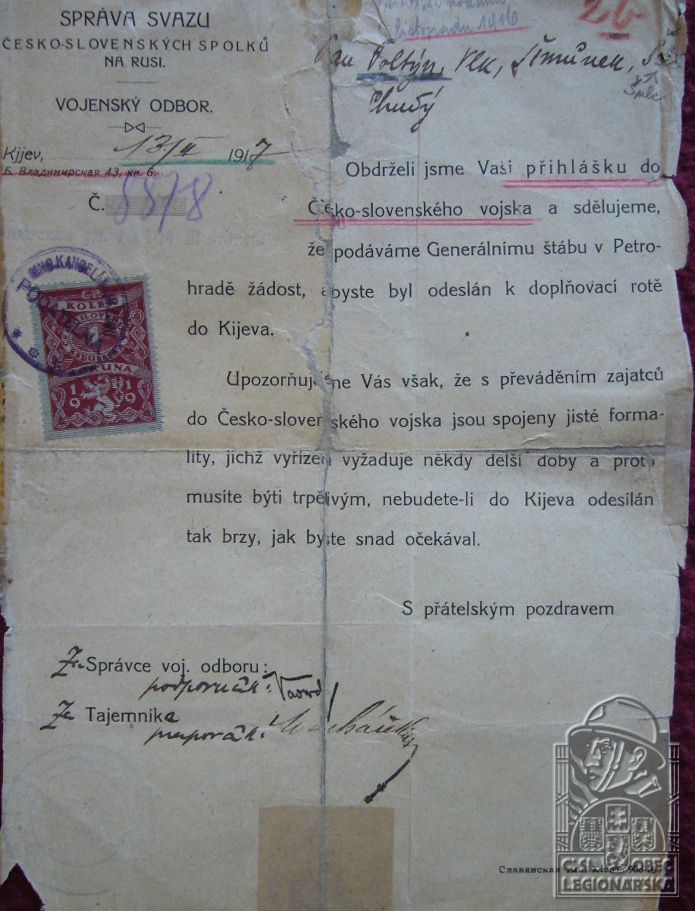 SPRÁVA SVAZU
ČESKO-SLOVENSKÝCH SPOLKŮ
NA RUSI.
VOJENSKÝ ODBOR.
Kyjev, 13/II 1917
Б. Владимирская 43, кв. 6.
Č. 8878
listopadu 1916
26
Pan Poltýn, Vlk, Šimůnek,
Chudý
Obdrželi jsme Vaši přihlášku do
Česko-slovenského vojska a sdělujeme,
že podáváme Generálnímu štábu v Petro-
hradě žádost, abyste byl odeslán k doplňovací rotě
do Kijeva.
Upozorňujeme Vás však, že s převáděním zajatců
do Česko-slovenského vojska jsou spojeny jisté forma-
lity, jichž vyřízení vyžaduje někdy delší doby a proto
musíte býti trpělivým, nebudete-li do Kijeva odesílán
tak brzy, jak byste snad očekával.
S přátelským pozdravem
Za Správce voj. odboru:
podporučík:
Za Tajemníka
praporčík:
KOLEK
KORUNA
1919
Славянская
ČSL. OBEC
LEGIONÁŘSKÁ